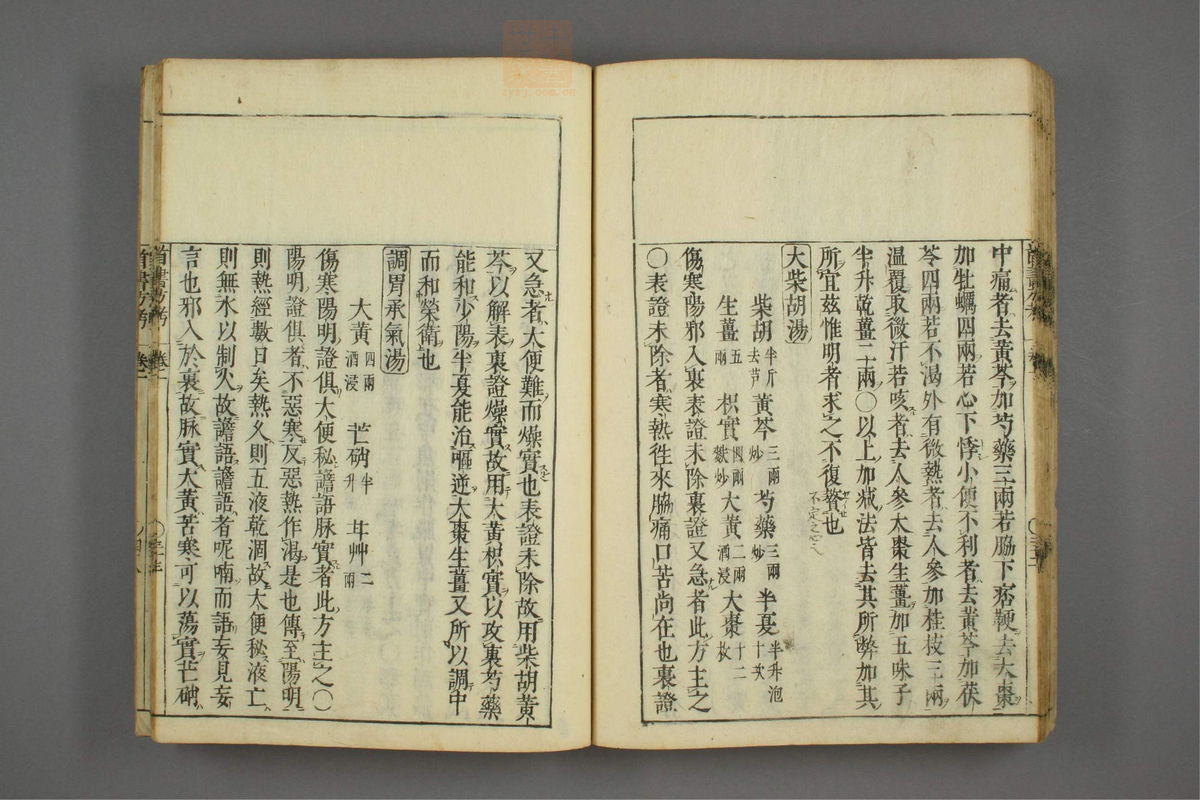 中痛者去黃芩加芍藥三兩若脇下痞鞕去大棗
加牡蠣四兩若心下悸小便不利者去黃芩加茯
苓四兩若不渴外有微熱者去人參加桂枝三兩
溫覆取微汗若咳者去人參大棗生薑加五味子
半升乾薑二兩〇以上加減法皆去其所弊加其
所宜茲惟明者求之不復贅也
大柴胡湯
柴胡半斤去芦 黃芩三兩炒 芍藥三兩炒 半夏半升泡十次
生薑五兩 枳實四兩麩炒 大黃二兩酒浸 大棗十二枚
傷寒陽邪入裏表證未除裏證又急者此方主之
〇表證未除者寒熱徃來脇痛口苦尚在也裏證
又急者大便難而燥實也表證未除故用柴胡黃
芩以解表裏證燥實故用大黃枳實以攻裏芍藥
能和少陽半夏能治嘔逆大棗生薑又所以調中
而和榮衛也
調胃承氣湯
大黃四兩酒浸 芒硝半升 甘艸二兩
傷寒陽明證俱大便秘譫語脉實者此方主之〇
陽明證俱者不惡寒反惡熱作渴是也傳至陽明
則熱經數日矣熱久則五液乾涸故大便秘液亡
則無水以制火故譫語譫語者呢喃而語妄見妄
言也邪入於裏故脉實大黃苦寒可以蕩實芒硝